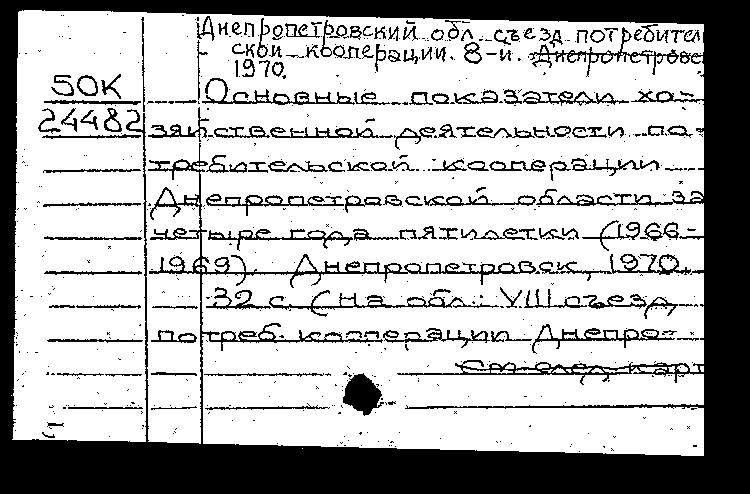 Днепропетровский обл. съезд потребитель
ской кооперации. 8-й. Днепропетровск
1970.
50К
24482
Основные показатели хо-
зяйственной деятельности по-
требительской кооперации
Днепропетровской области за
четыре года пятилетки (1966-
1969). Днепропетровск, 1970.
32 с. (На обл.: VIII съезд
потреб. кооперации Днепро-
См. след. карт